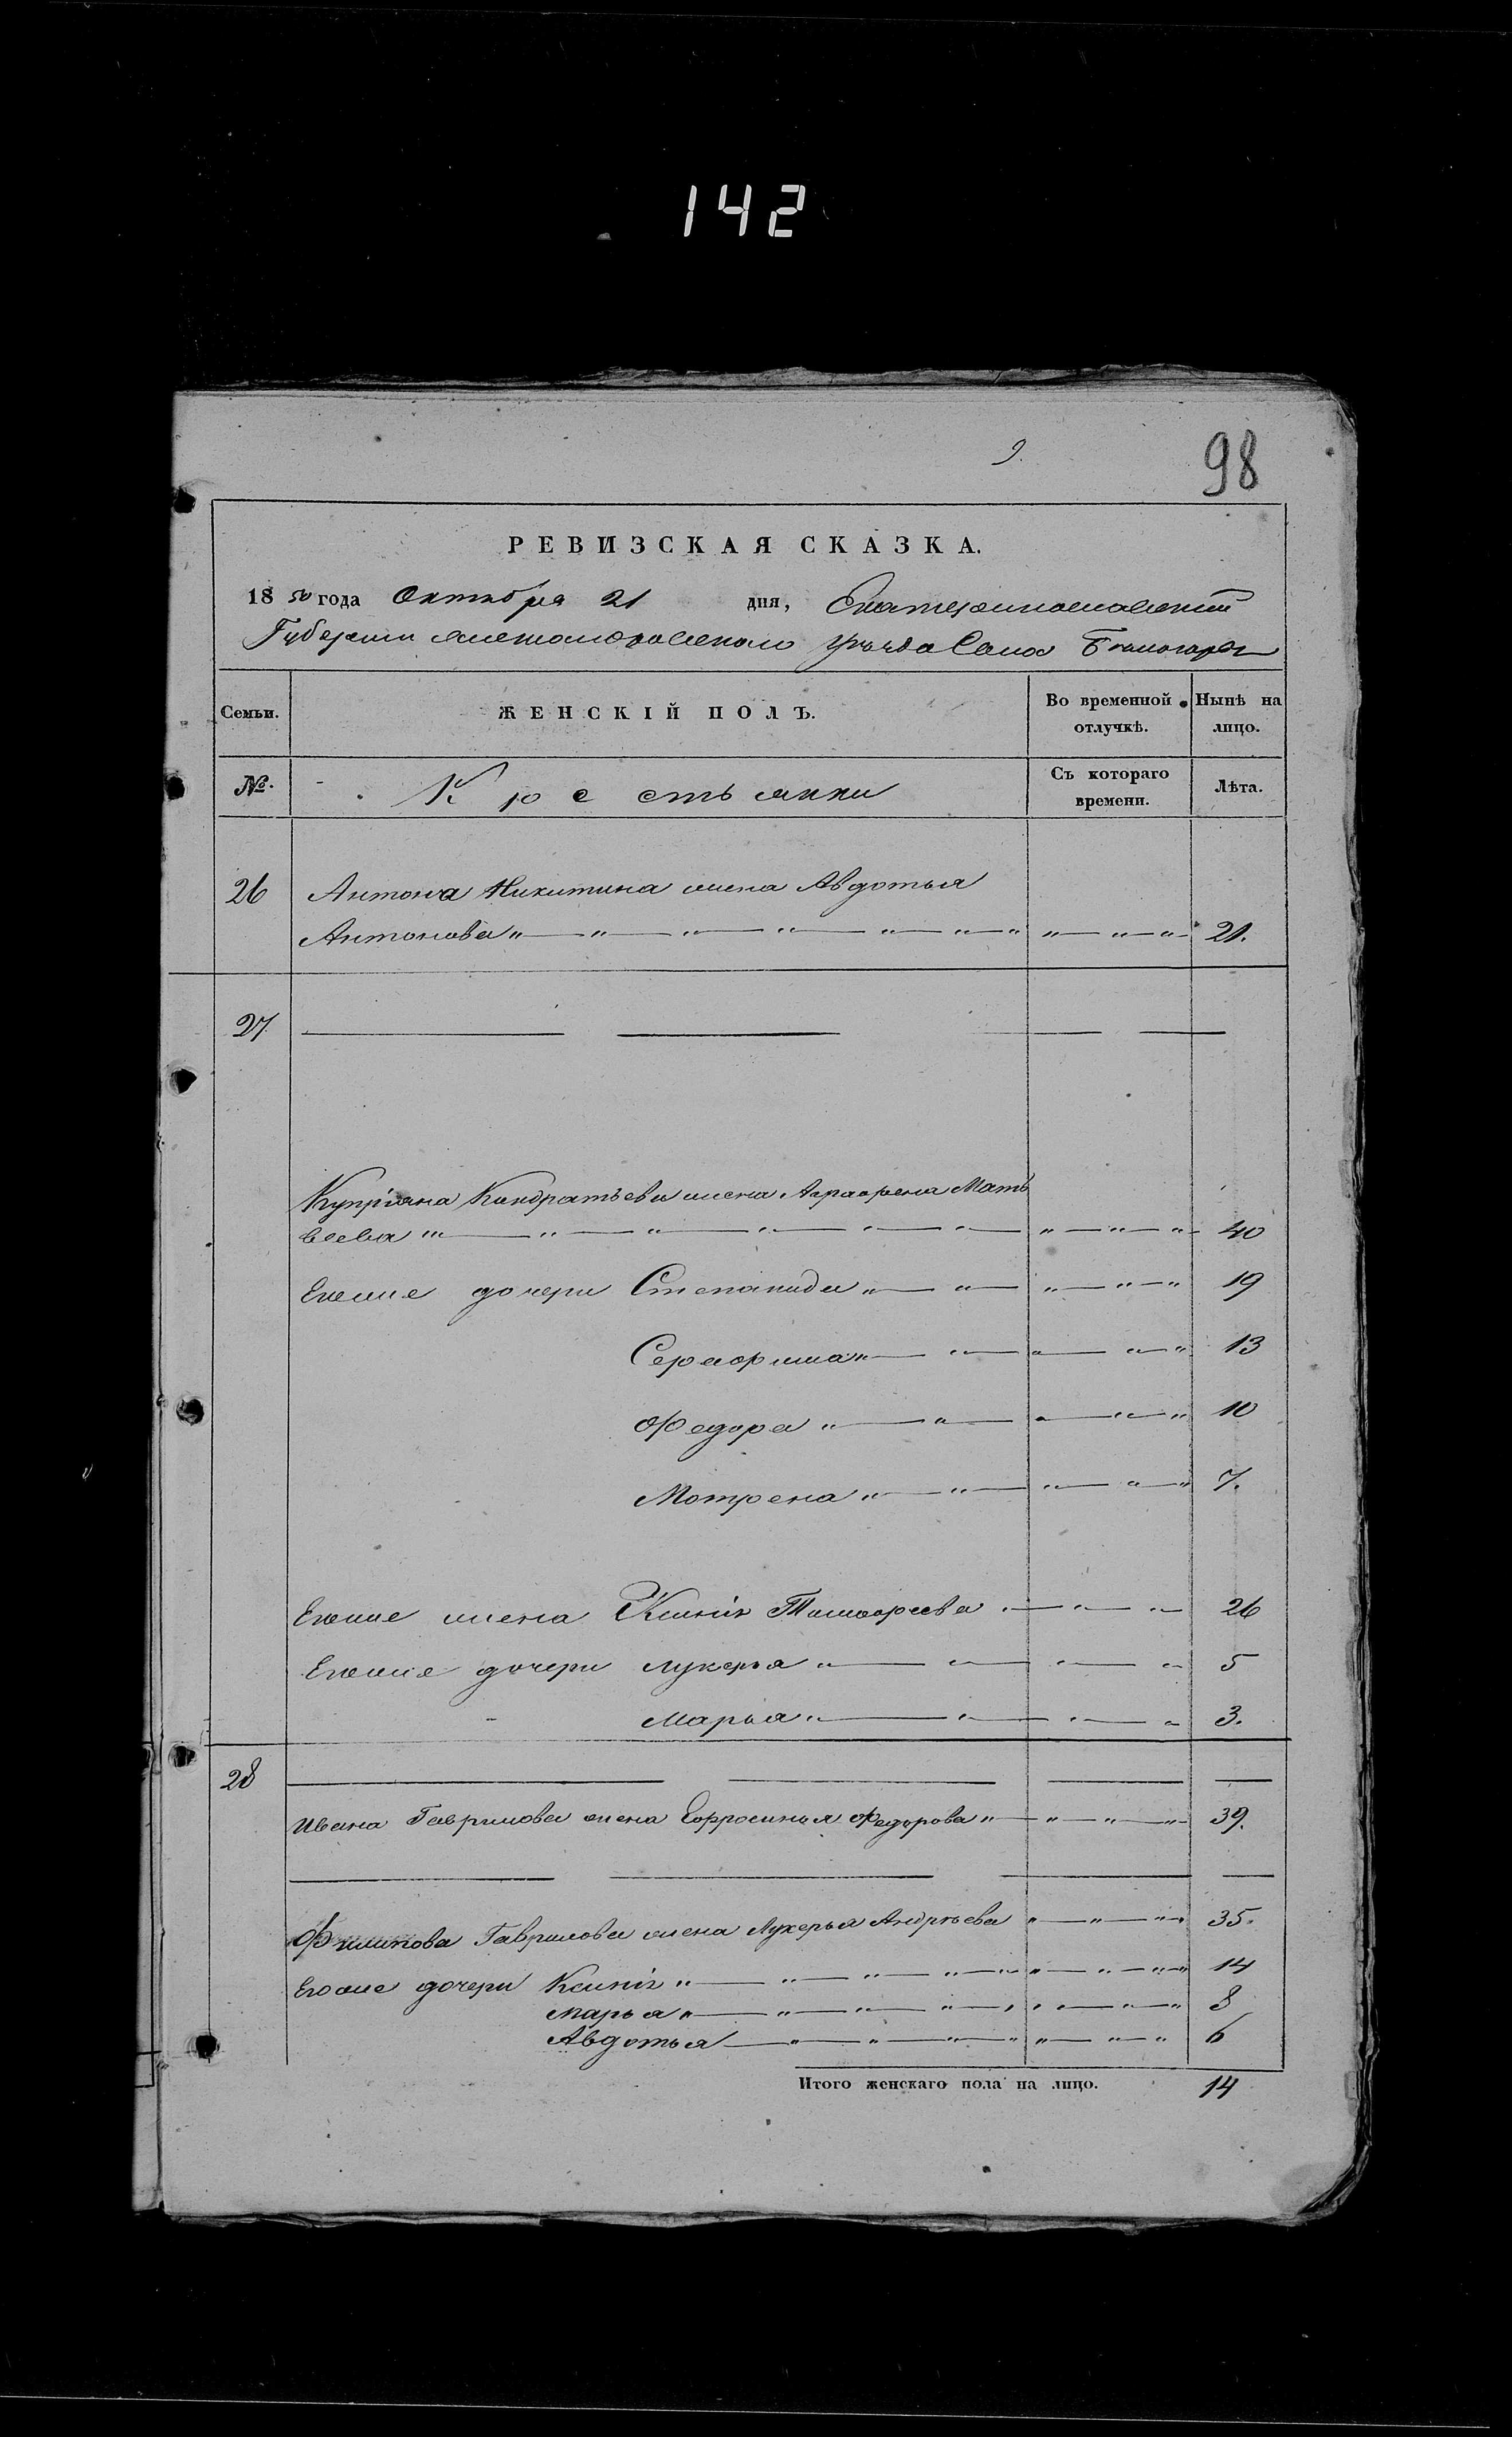 142
9.
98
РЕВИЗСКАЯ СКАЗКА.
1850 года Октября 21 дня, Екатеринославской
Губернии Уѣзда Села
Семьи. ЖЕНСКІЙ ПОЛЪ. Во временной отлучкѣ. Нынѣ на лицо.
№. Крестьянки Съ котораго времени. Лѣта.
26 Антона Никитина жена Авдотья
Антонова 21.
27
Купріяна Кондратьева жена Аграфена Мать
веева 40
Егоже дочери Степанида 19
Серафима 13
Федора 10
Мотрена 7.
Егоже жена Ксенія Тимофеева 26
Егоже дочери Лукерья 5
Марья 3.
28
Ивана Гаврилова жена Ефросинья Федорова 39.
Филипова Гаврилова жена Лукерья Андрѣева 35.
Егоже дочери Ксенія 14
Марья 8
Авдотья 6
Итого женскаго пола на лицо. 14